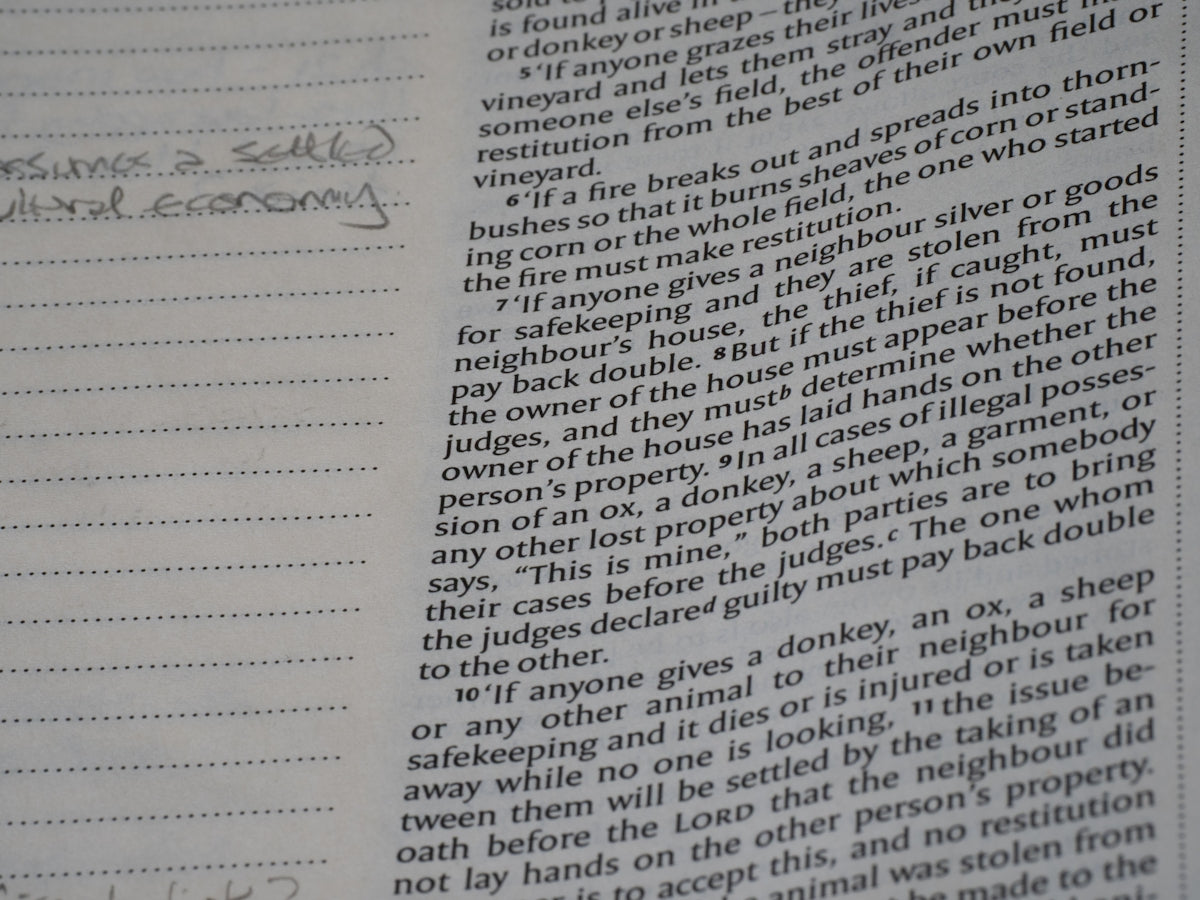 assumes a settled
ultural economy
is found alive in
or donkey or sheep – they
5 ‘If anyone grazes their lives
vineyard and lets them stray and they
someone else’s field, the offender must
restitution from the best of their own field or
vineyard.
6 ‘If a fire breaks out and spreads into thorn-
bushes so that it burns sheaves of corn or stand-
ing corn or the whole field, the one who started
the fire must make restitution.
7 ‘If anyone gives a neighbour silver or goods
for safekeeping and they are stolen from the
neighbour’s house, the thief, if caught, must
pay back double. 8 But if the thief is not found,
the owner of the house must appear before the
judges, and they must b determine whether the
owner of the house has laid hands on the other
person’s property. 9 In all cases of illegal posses-
sion of an ox, a donkey, a sheep, a garment, or
any other lost property about which somebody
says, “This is mine,” both parties are to bring
their cases before the judges. c The one whom
the judges declare d guilty must pay back double
to the other.
10 ‘If anyone gives a donkey, an ox, a sheep
or any other animal to their neighbour for
safekeeping and it dies or is injured or is taken
away while no one is looking, 11 the issue be-
tween them will be settled by the taking of an
oath before the LORD that the neighbour did
not lay hands on the other person’s property.
is to accept this, and no restitution
animal was stolen from
be made to the